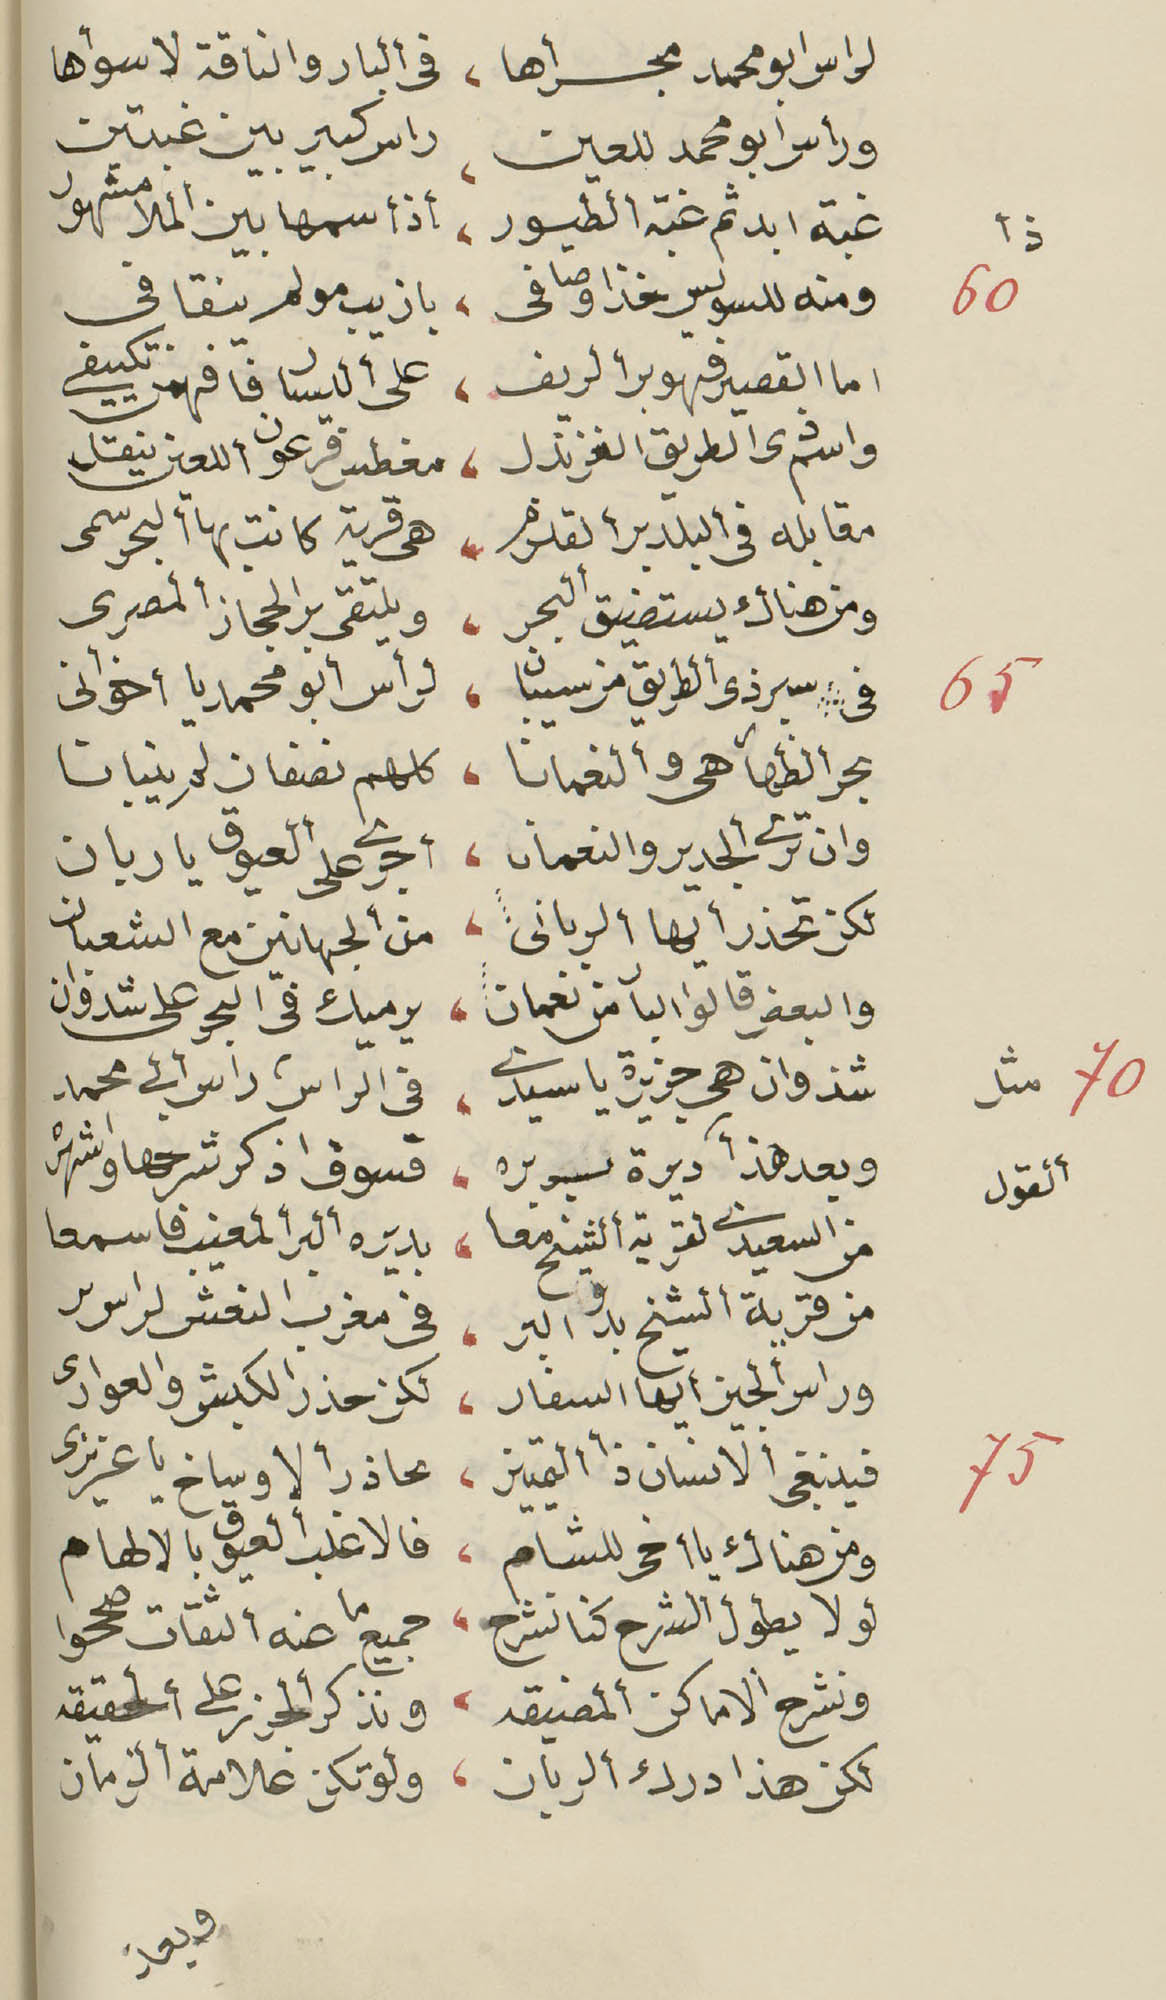 لراس ابو محمد مجرأها ، فى ألبار والناقة لاسوأها
وراس أبو محمد للعين ، راس كبير بين غبتين
غبته ابد ثم غبة ألطيور ، أذأ سمها بين ألملا مشهور ذأ
60 ومنه للسويس خذا وصافى ، باذيب مولم ينقافى
اما القصير فهو برألريف ، على أليسار قافهمن تكييفى
واشم ى الطريق الغرندل ، مغطس فرعون أللعين ينقل
مقابله فى ألبلد برألقلزم ، هى قرية كانت بهاألبحر سمى
ومن هناك يستضيق ألبحر ، ويلتقى برالحجاز ألمصرى
65 فى سيرذى ألطريق من سيبان ، لرأس أبو محمد يا أخوأنى
بحر ألظهره هى وألنعمانا ، كلهم نصفان لم ينبانا
وان ترى ألجدير والنعمان ، أجرى على ألعيوق ياربان
لكن تحذر أيها ألربانى ، من ألجهانين مع الشعبان
والبعض قالوا لبا من نعمان ، يرميك فى البحر على شدوان
70 شدوان هى جزيرة يا سيدى ، فى الراس راس أبى محمد مثل
وبعد هذأ ديرة بسويره ، فسوف اذكر شرحها وأشهره ألقول
من السعيدى لقرية ألشيخ معا ، باديره ألبر ألمغيب فاسمعا
من قرية ألشيخ بدو البر ، فى مغرب النعش لراس
وراس ألجين أيها السفار ، لكن حذر الكبش والعوارى
75 فينبغى ألانسان ذأ ألتمييز ، يحاذرألاوساخ يا عزيزى
ومن هناك يا أخى للشام ، فالاغلب ألعيوق بالالهام
لولا يطول ألشرح كنا نشرح ، جميع ما عنه ألثقات صححوا
ونشرح ألاماكن ألمضيقه ، ونذكر ألجزر على ألحقيقه
لكن هذا درك ألربان ، ولوتكن علامة ألزمان
وبعد